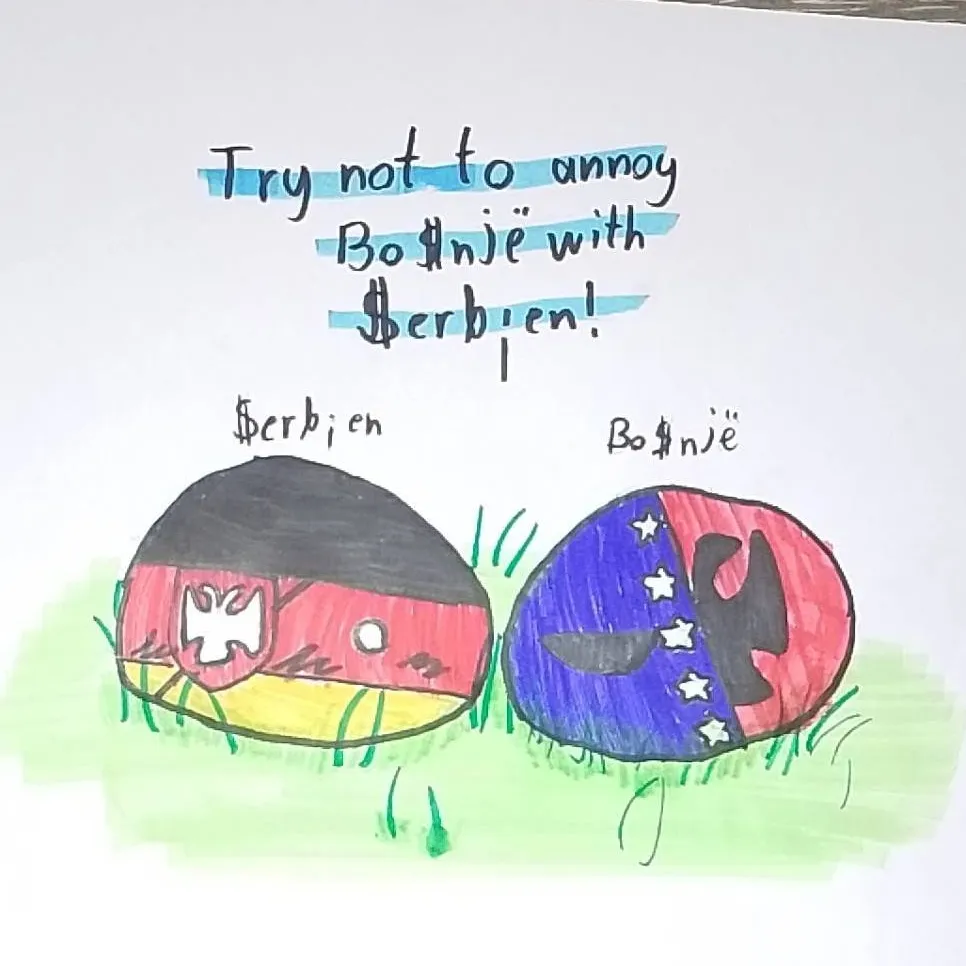 Try not to annoy
Bo$një with
$erb¡en!
$erb¡en
Bo$një